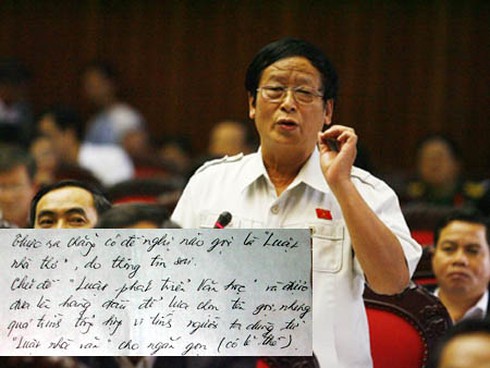 Thực ra chẳng có đề nghị nào gọi là "Luật
nhà thơ", do thông tin sai.
Chỉ đề "Luật phát triển Văn học" và được
đưa là hàng đầu để lựa chọn tên gọi, nhưng
quá trình tổng hợp vi tính người ta dùng từ
"Luật nhà văn" cho ngắn gọn (có lẽ thế).